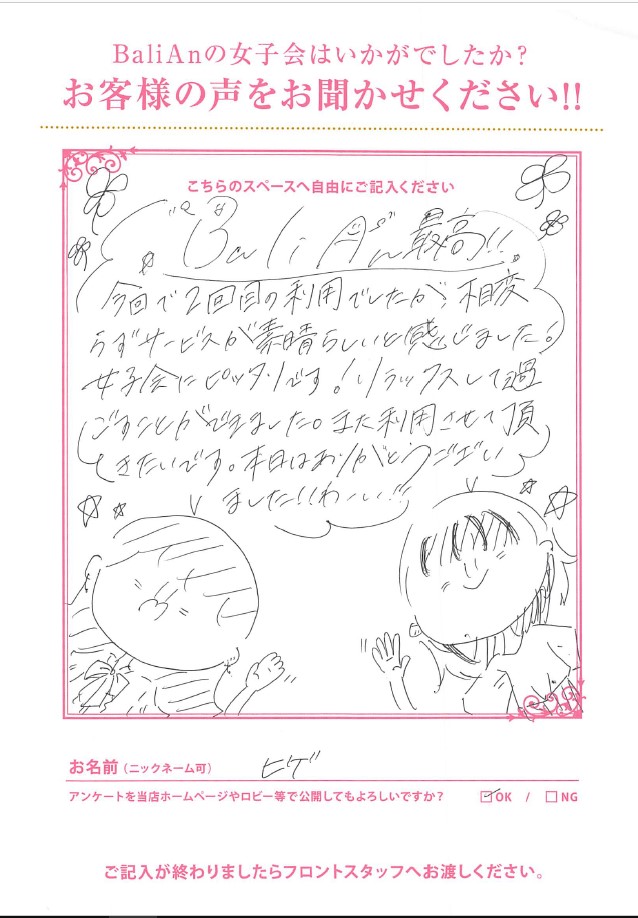 BaliAnの女子会はいかがでしたか?
お客様の声をお聞かせください!!
こちらのスペースへ自由にご記入ください
"BaliAn"最高!!
今回で2回目の利用でしたが、相変
らずサービスが素晴らしいと感じました。
女子会にピッタリです!リラックスして過
ごすことができました。また利用させて頂
きたいです。本日はありがとうござい
ました!!わーい!!
お名前(ニックネーム可) ヒゲ
アンケートを当店ホームページやロビー等で公開してもよろしいですか? ☑OK / □NG
ご記入が終わりましたらフロントスタッフへお渡しください。